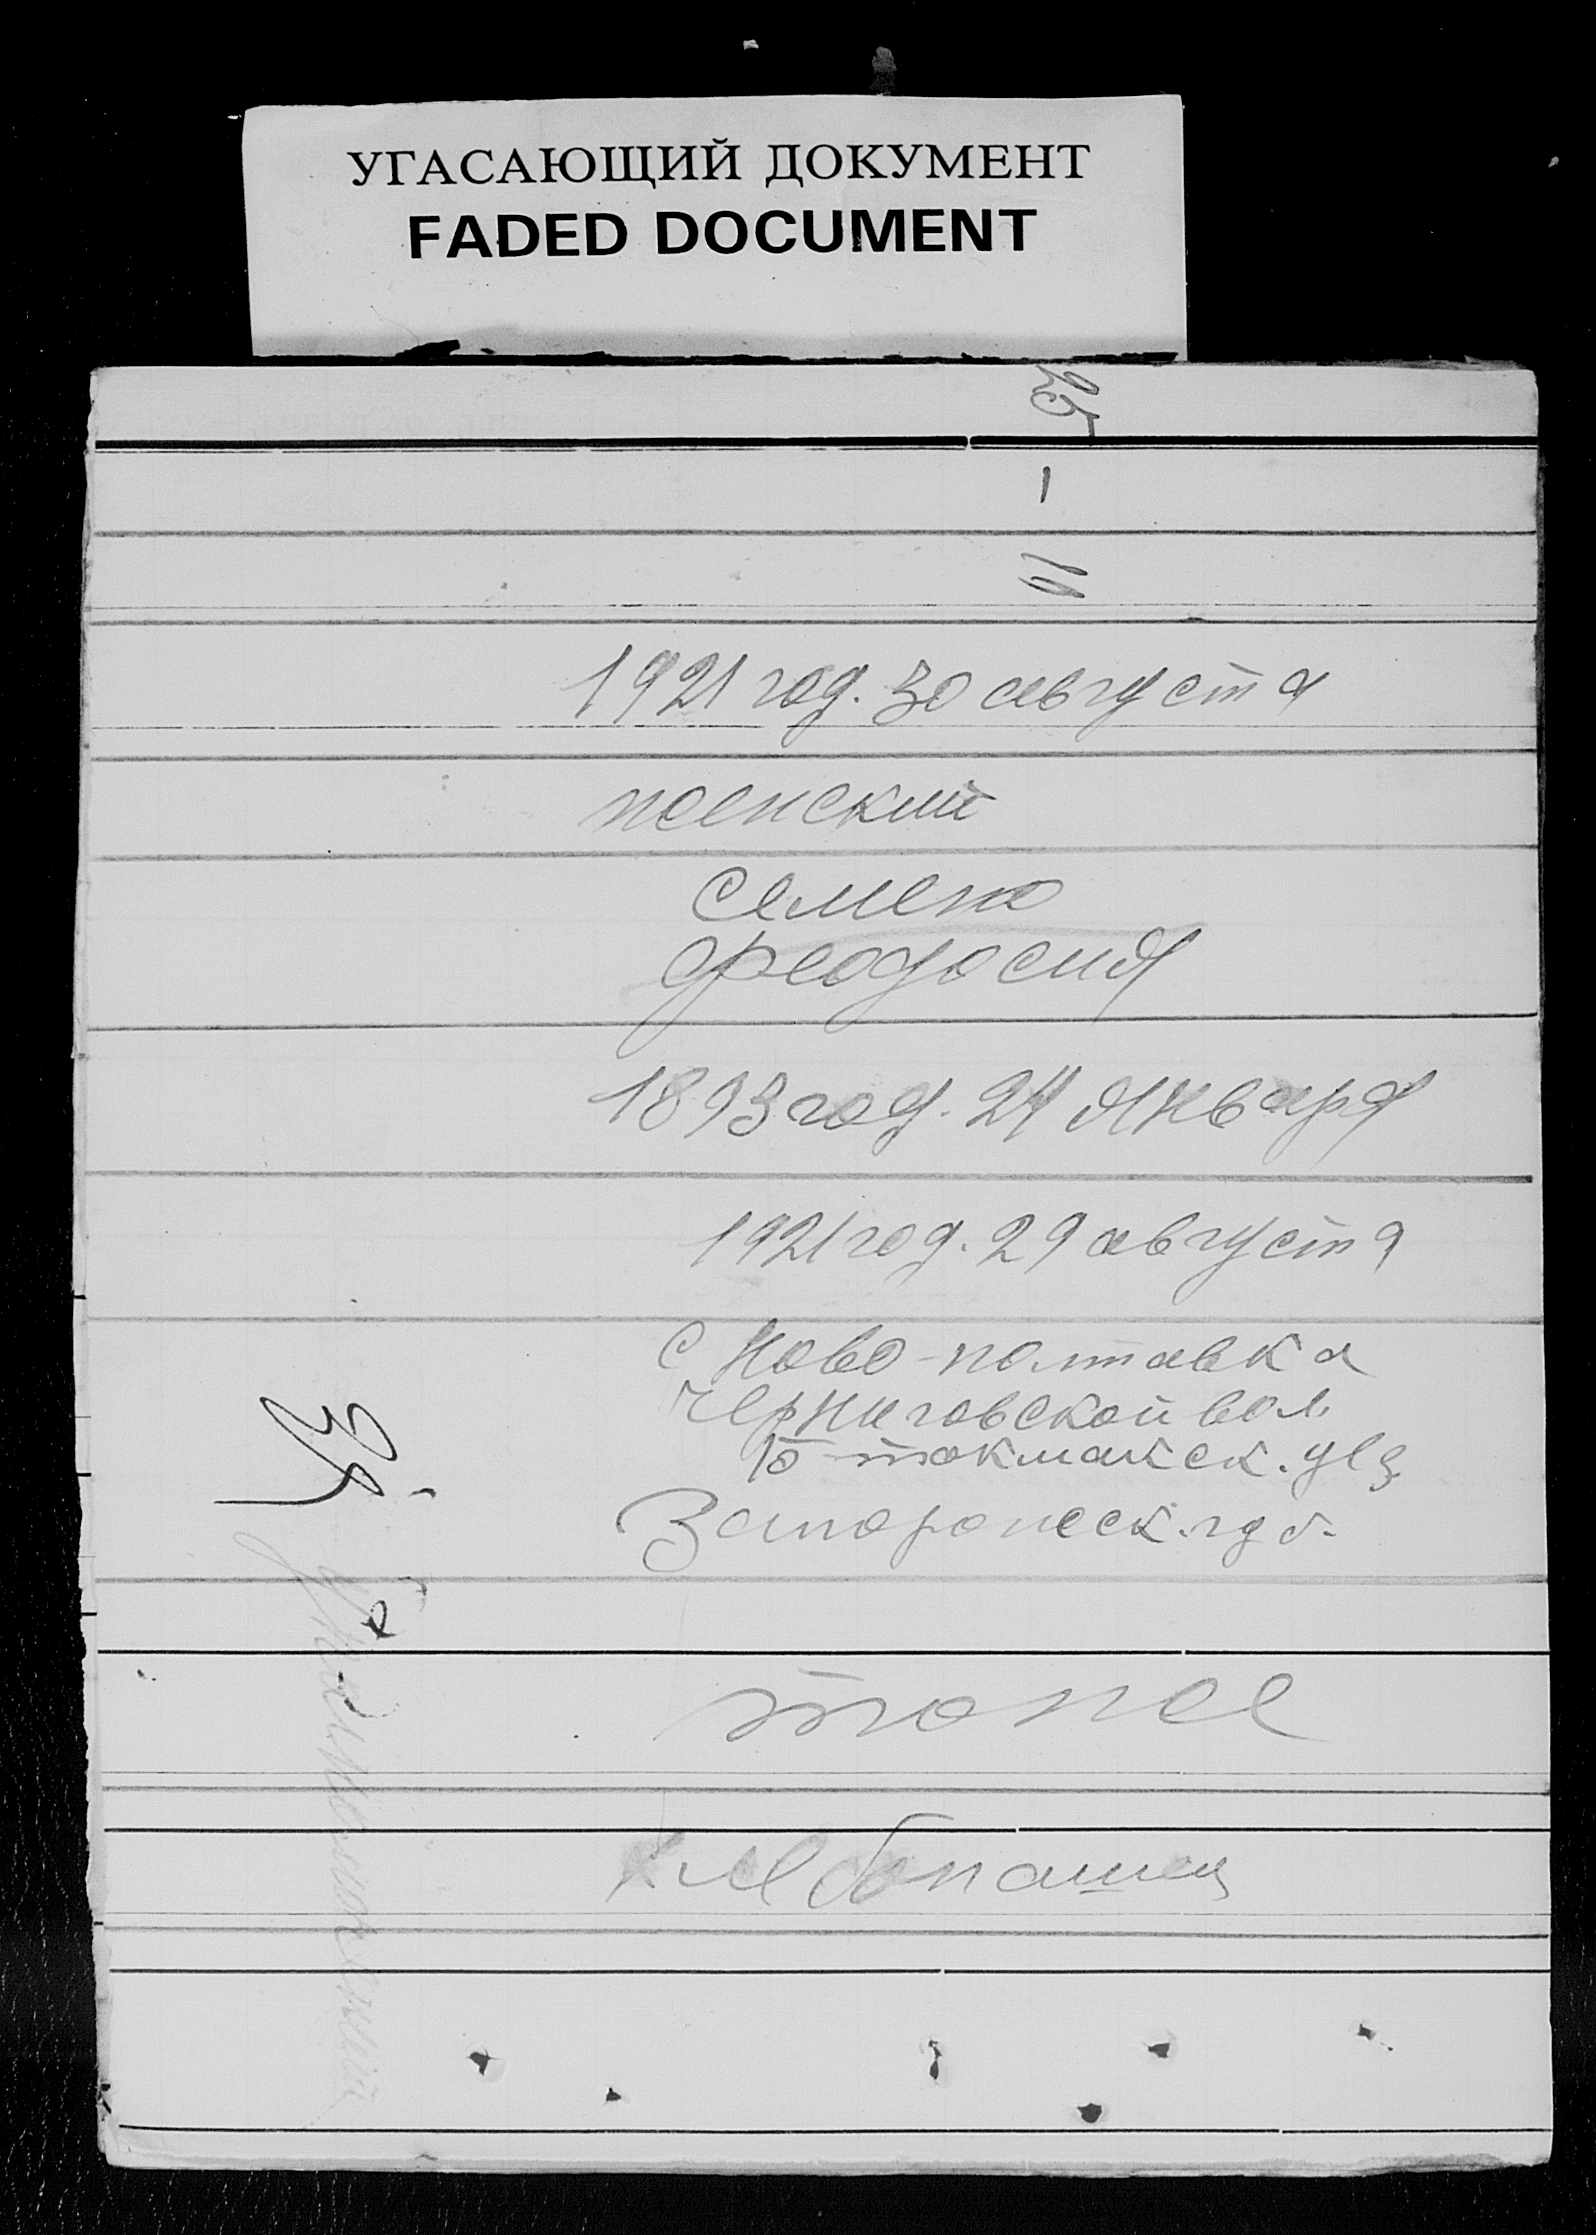 УГАСАЮЩИЙ ДОКУМЕНТ
FADED DOCUMENT
25
1921 год. 30 августа
женский
Семено
Феодосия
1893 год. 24 января
1921 год. 29 августа
с Ново-полтавка
Черниговской вол.
Б-токмакск. уез
Запорожск. губ.
тоже
хлебопашец